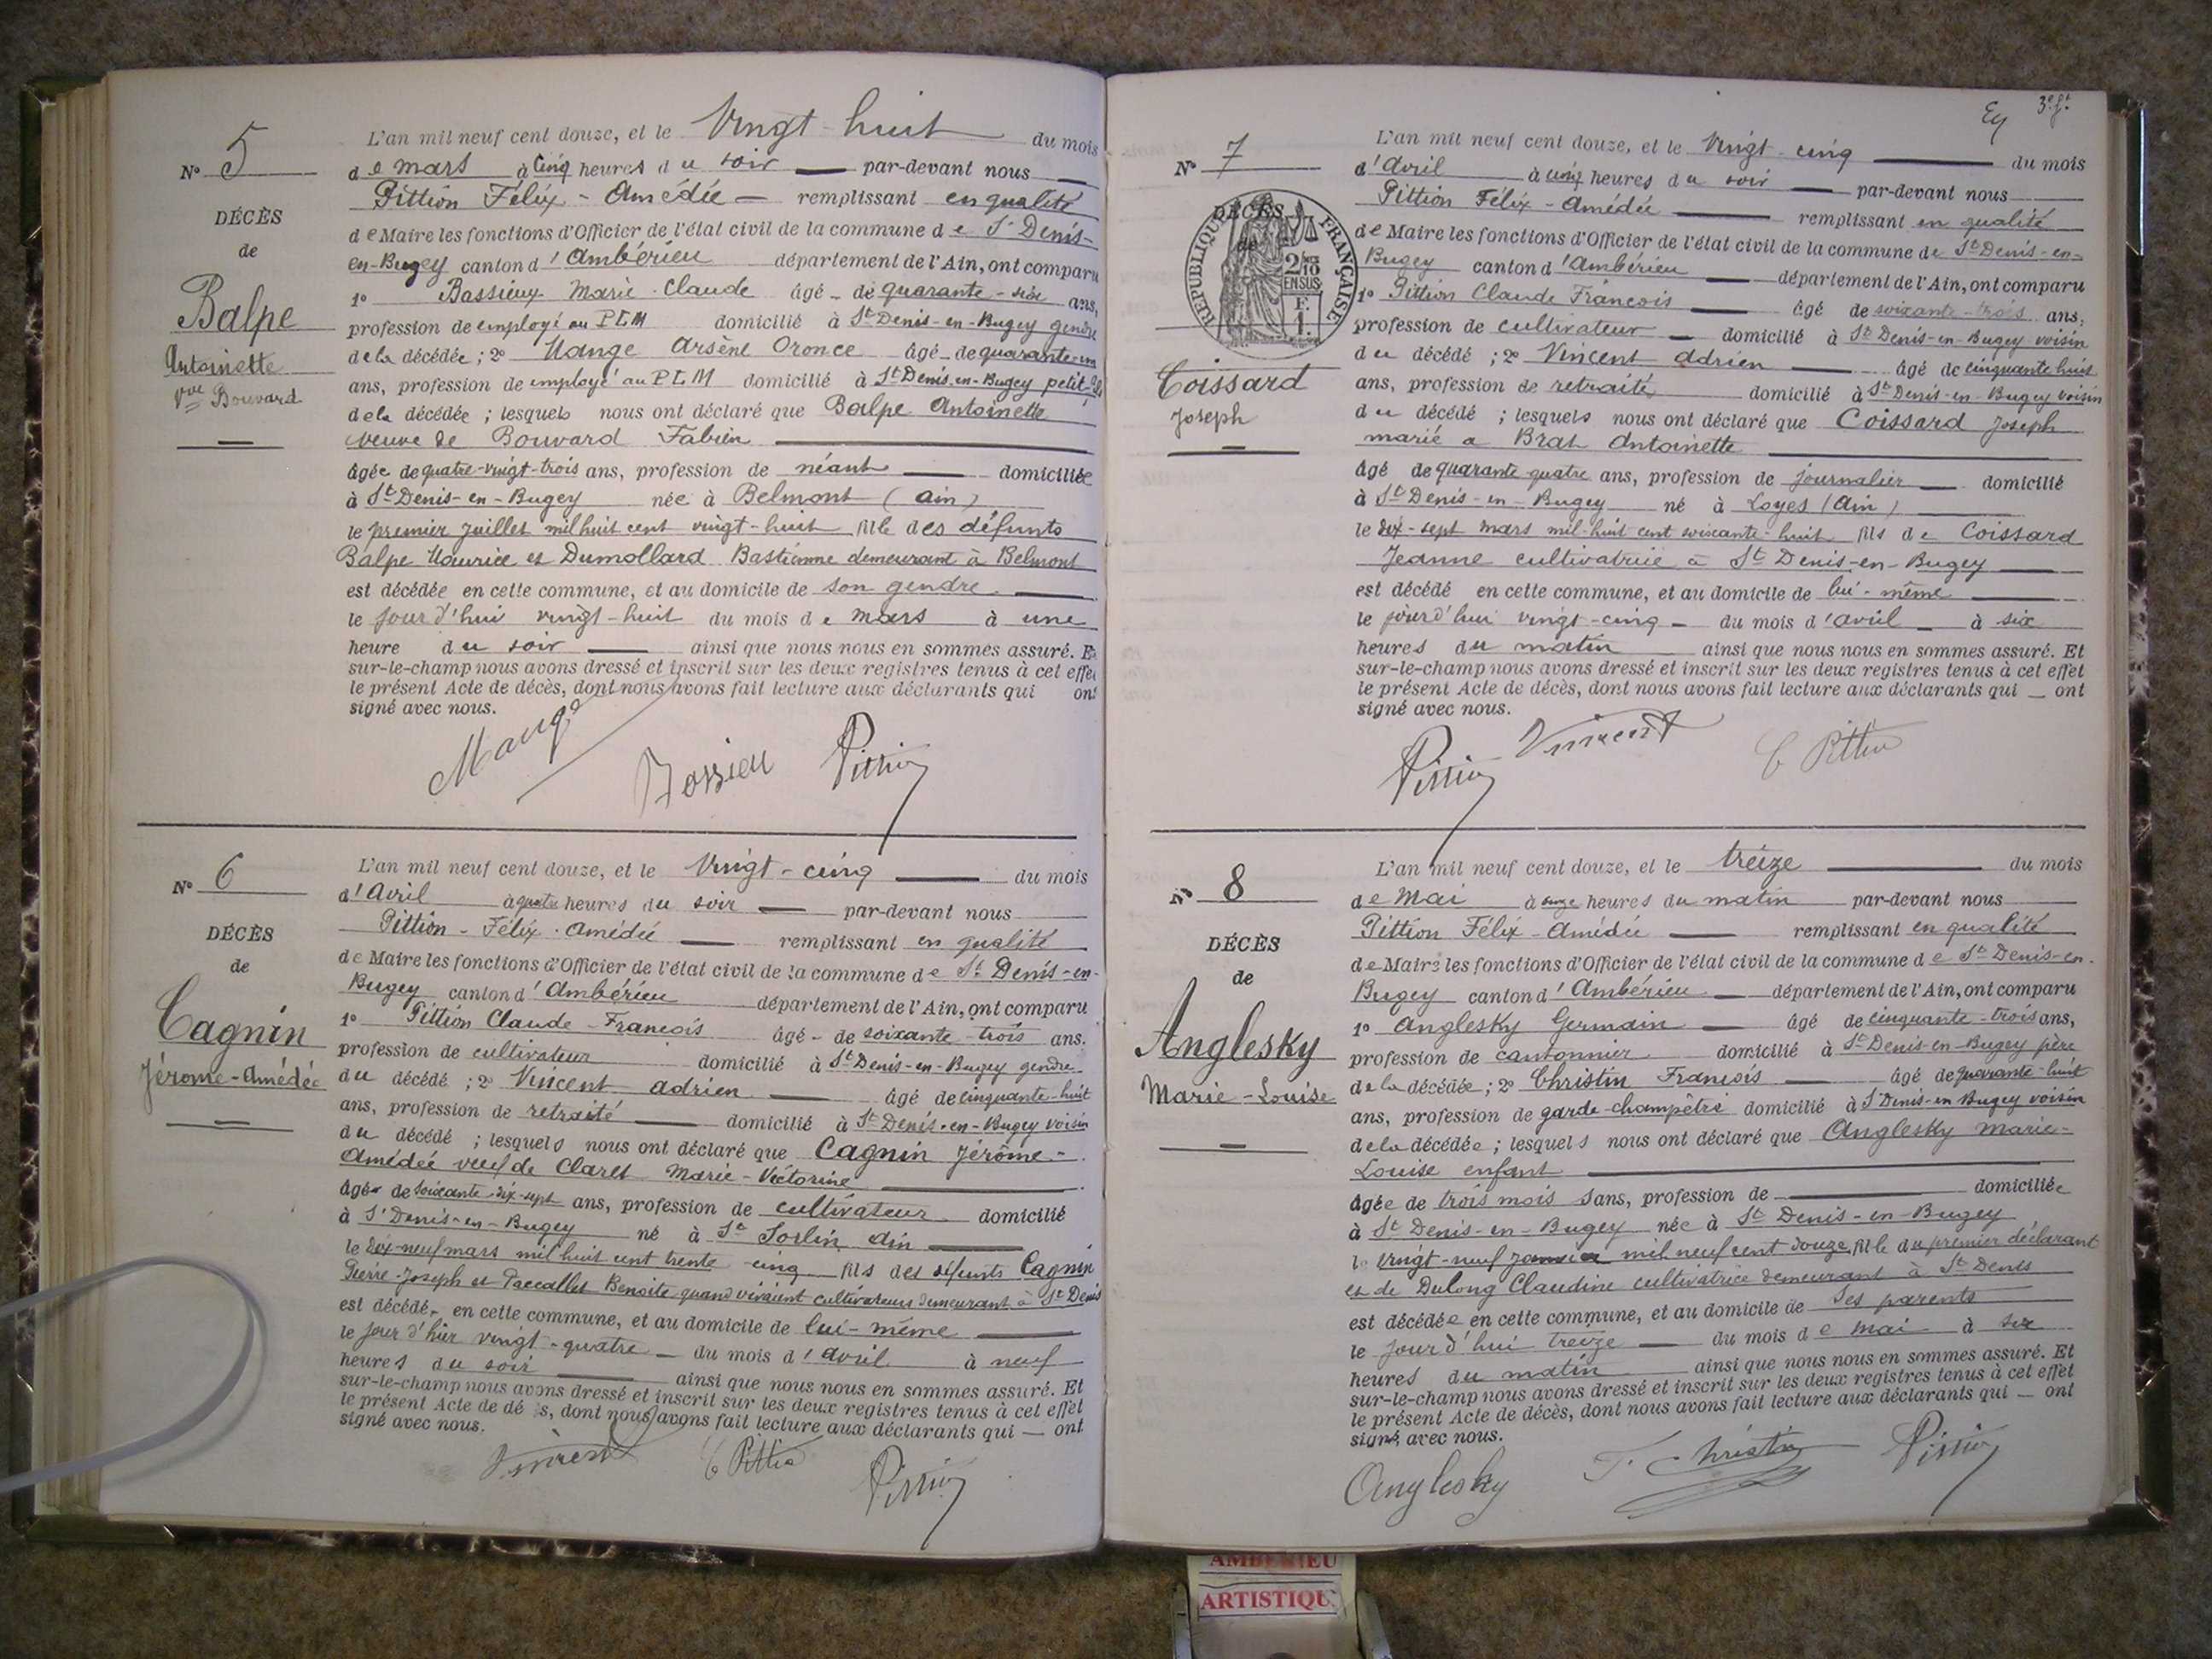 N° 5
DÉCÈS
de
Balpe
Antoinette
Vve Bouvard
L'an mil neuf cent douze, et le Vingt-huit du mois
de mars à cinq heures du soir par-devant nous
Pittion Félix-Amédée remplissant en qualité
de Maire les fonctions d'Officier de l'état civil de la commune de St Denis-
en-Bugey canton d'Ambérieu département de l'Ain, ont comparu
1° Bassieux Marie Claude âgé de quarante-six ans,
profession de employé au PLM domicilié à St Denis-en-Bugey gendre
de la décédée ; 2° Mange Arsène Oronce âgé de quarante-un
ans, profession de employé au PLM domicilié à St Denis-en-Bugey petit-fils
de la décédée ; lesquels nous ont déclaré que Balpe Antoinette
veuve de Bouvard Fabien
âgée de quatre-vingt-trois ans, profession de néant domiciliée
à St Denis-en-Bugey née à Belmont (ain)
le premier juillet mil huit cent vingt-huit fille des défunts
Balpe Maurice et Dumollard Bastienne demeurant à Belmont
est décédée en cette commune, et au domicile de son gendre
le jour d'hui vingt-huit du mois de mars à une
heure du soir ainsi que nous nous en sommes assuré. Et
sur-le-champ nous avons dressé et inscrit sur les deux registres tenus à cet effet
le présent Acte de décès, dont nous avons fait lecture aux déclarants qui ont
signé avec nous.
Mange Bossieu Pittion
N° 6
DÉCÈS
de
Cagnin
Jérome-Amédée
L'an mil neuf cent douze, et le Vingt-cinq du mois
d'Avril à quatre heures du soir par-devant nous
Pittion-Félix-Amédée remplissant en qualité
de Maire les fonctions d'Officier de l'état civil de la commune de St Denis-en-
Bugey canton d'Ambérieu département de l'Ain, ont comparu
1° Pittion Claude-François âgé de soixante-trois ans.
profession de cultivateur domicilié à St Denis-en-Bugey gendre
du décédé ; 2° Vincent adrien âgé de cinquante-huit
ans, profession de retraité domicilié à St Denis-en-Bugey voisin
du décédé ; lesquels nous ont déclaré que Cagnin Jérôme-
Amédée veuf de Claret Marie-Victorine
âgé de soixante-dix-sept ans, profession de cultivateur domicilié
à St Denis-en-Bugey né à St Sorlin ain
le dix-neuf mars mil huit cent trente-cinq fils des défunts Cagnin
Pierre-Joseph et Paccallet Benoite quand vivaient cultivateurs demeurant à St Denis
est décédé, en cette commune, et au domicile de lui-même
le jour d'hier vingt-quatre du mois d'avril à neuf
heures du soir ainsi que nous nous en sommes assuré. Et
sur-le-champ nous avons dressé et inscrit sur les deux registres tenus à cet effet
le présent Acte de dé s, dont nous avons fait lecture aux déclarants qui ont
signé avec nous.
Vincent C Pittion Pittion
Ey 3e ft
N° 7
DÉCÈS
de
RÉPUBLIQUE FRANÇAISE
2/10 EN SUS
F. 1.
Coissard
Joseph
L'an mil neuf cent douze, et le Vingt-cinq du mois
d'Avril à cinq heures du soir par-devant nous
Pittion Félix-Amédée remplissant en qualité
de Maire les fonctions d'Officier de l'état civil de la commune de St Denis-en-
Bugey canton d'Ambérieu département de l'Ain, ont comparu
1° Pittion Claude François âgé de soixante-trois ans,
profession de cultivateur domicilié à St Denis-en-Bugey voisin
du décédé ; 2° Vincent adrien âgé de cinquante huit
ans, profession de retraité domicilié à St Denis-en-Bugey voisin
du décédé ; lesquels nous ont déclaré que Coissard Joseph
marié a Brat Antoinette
âgé de quarante quatre ans, profession de journalier domicilié
à St Denis-en-Bugey né à Loyes (Ain)
le dix-sept mars mil-huit cent soixante-huit fils de Coissard
Jeanne cultivatrice à St Denis-en-Bugey
est décédé en cette commune, et au domicile de lui-même
le jourd'hui vingt-cinq du mois d'avril à six
heures du matin ainsi que nous nous en sommes assuré. Et
sur-le-champ nous avons dressé et inscrit sur les deux registres tenus à cet effet
le présent Acte de décès, dont nous avons fait lecture aux déclarants qui ont
signé avec nous.
Pittion Vincent C Pittion
N° 8
DÉCÈS
de
Anglesky
Marie-Louise
L'an mil neuf cent douze, et le treize du mois
de Mai à onze heures du matin par-devant nous
Pittion Félix-Amédée remplissant en qualité
de Maire les fonctions d'Officier de l'état civil de la commune de St Denis-en-
Bugey canton d'Ambérieu département de l'Ain, ont comparu
1° Anglesky Germain âgé de cinquante-trois ans,
profession de cantonnier domicilié à St Denis-en-Bugey père
de la décédée ; 2° Christin François âgé de quarante-huit
ans, profession de garde-champêtre domicilié à St Denis-en Bugey voisin
de la décédée ; lesquels nous ont déclaré que Anglesky Marie-
Louise enfant
âgée de trois mois sans, profession de domiciliée
à St Denis-en-Bugey née à St Denis-en-Bugey
le vingt-neuf janvier mil neuf cent douze fille du premier déclarant
et de Dulong Claudine cultivatrice demeurant à St Denis
est décédée en cette commune, et au domicile de ses parents
le jour d'hui treize du mois de mai à six
heures du matin ainsi que nous nous en sommes assuré. Et
sur-le-champ nous avons dressé et inscrit sur les deux registres tenus à cet effet
le présent Acte de décès, dont nous avons fait lecture aux déclarants qui ont
signé avec nous.
Anglesky F. Christin Pittion
AMBERIEU
ARTISTIQU